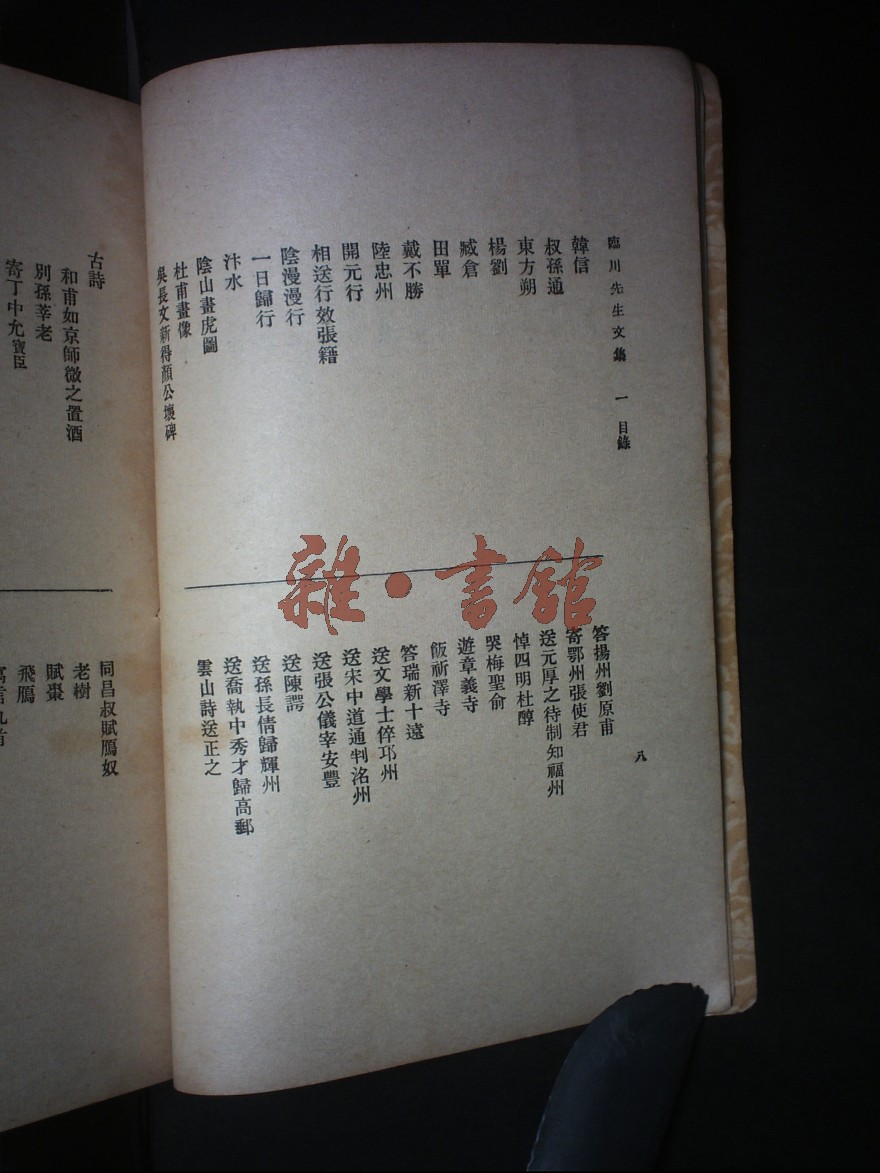 臨川先生文集 一 目錄
韓信
叔孫通
東方朔
楊劉
臧倉
田單
戴不勝
陸忠州
開元行
相送行效張籍
陰漫漫行
一日歸行
汴水
陰山畫虎圖
杜甫畫像
吳長文新得顏公壞碑
八
答揚州劉原甫
寄鄂州張使君
送元厚之待制知福州
悼四明杜醇
哭梅聖俞
遊章義寺
飯祈澤寺
答瑞新十遠
送文學士倅邛州
送宋中道通判洺州
送張公儀宰安豐
送陳諤
送孫長倩歸輝州
送喬執中秀才歸高郵
雲山詩送正之
古詩
和甫如京師微之置酒
別孫莘老
寄丁中允寶臣
同昌叔賦鴈奴
老樹
賦棗
飛鴈
寓言九首
雜·書館